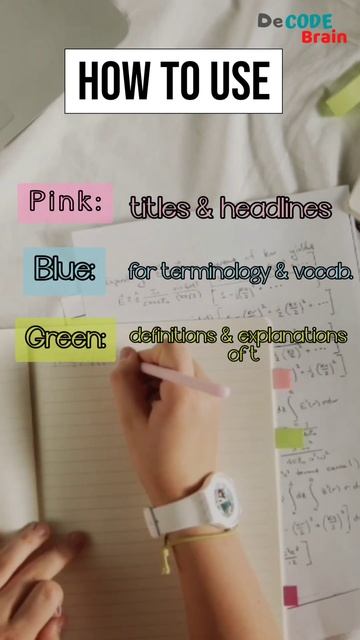 DeCODE
Brain
HOW TO USE
Pink: titles & headlines
Blue: for terminology & vocab.
Green: definitions & explanations
of t